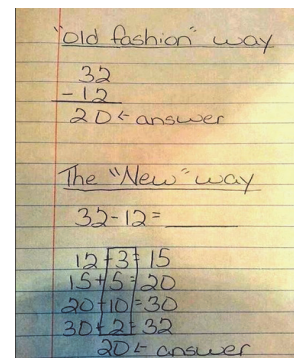 "old fashion" way
32
- 12
20 ← answer
The "New" way
32-12=____
12+3=15
15+5=20
20+10=30
30+2=32
20 ← answer